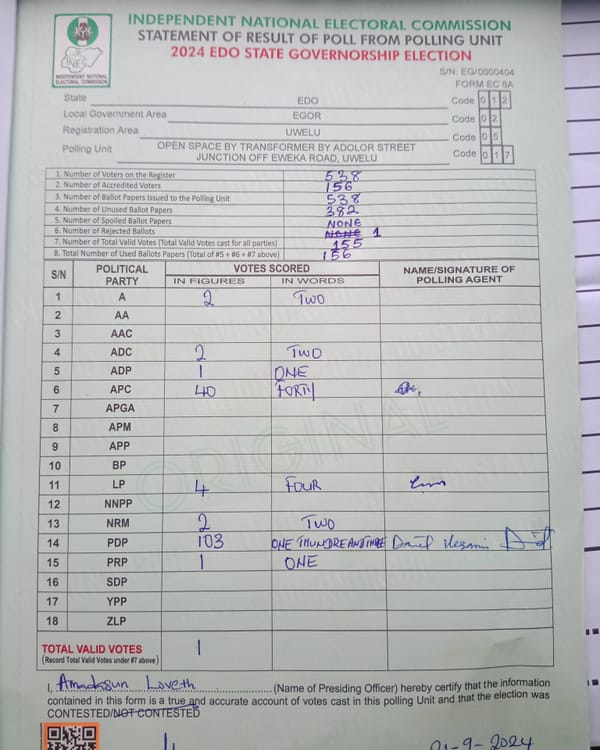 INDEPENDENT NATIONAL ELECTORAL COMMISSION
STATEMENT OF RESULT OF POLL FROM POLLING UNIT
2024 EDO STATE GOVERNORSHIP ELECTION
INEC
INDEPENDENT NATIONAL ELECTORAL COMMISSION
S/N: EG/0000404
FORM EC 8A
State EDO Code 0 1 2
Local Government Area EGOR Code 0 2
Registration Area UWELU Code 0 5
Polling Unit OPEN SPACE BY TRANSFORMER BY ADOLOR STREET JUNCTION OFF EWEKA ROAD, UWELU Code 0 1 7
1. Number of Voters on the Register 538
2. Number of Accredited Voters 156
3. Number of Ballot Papers Issued to the Polling Unit 538
4. Number of Unused Ballot Papers 382
5. Number of Spoiled Ballot Papers NONE
6. Number of Rejected Ballots NONE 1
7. Number of Total Valid Votes (Total Valid Votes cast for all parties) 155
8. Total Number of Used Ballots Papers (Total of #5 + #6 + #7 above) 156
S/N POLITICAL PARTY VOTES SCORED NAME/SIGNATURE OF POLLING AGENT
IN FIGURES IN WORDS
1 A 2 TWO
2 AA
3 AAC
4 ADC 2 TWO
5 ADP 1 ONE
6 APC 40 FORTY
7 APGA
8 APM
9 APP
10 BP
11 LP 4 FOUR
12 NNPP
13 NRM 2 TWO
14 PDP 103
15 PRP 1 ONE
16 SDP
17 YPP
18 ZLP
ORIGINAL
TOTAL VALID VOTES 1
(Record Total Valid Votes under #7 above)
I, Amadasun Loveth (Name of Presiding Officer) hereby certify that the information
contained in this form is a true and accurate account of votes cast in this polling Unit and that the election was
CONTESTED/NOT CONTESTED
21-9-2024